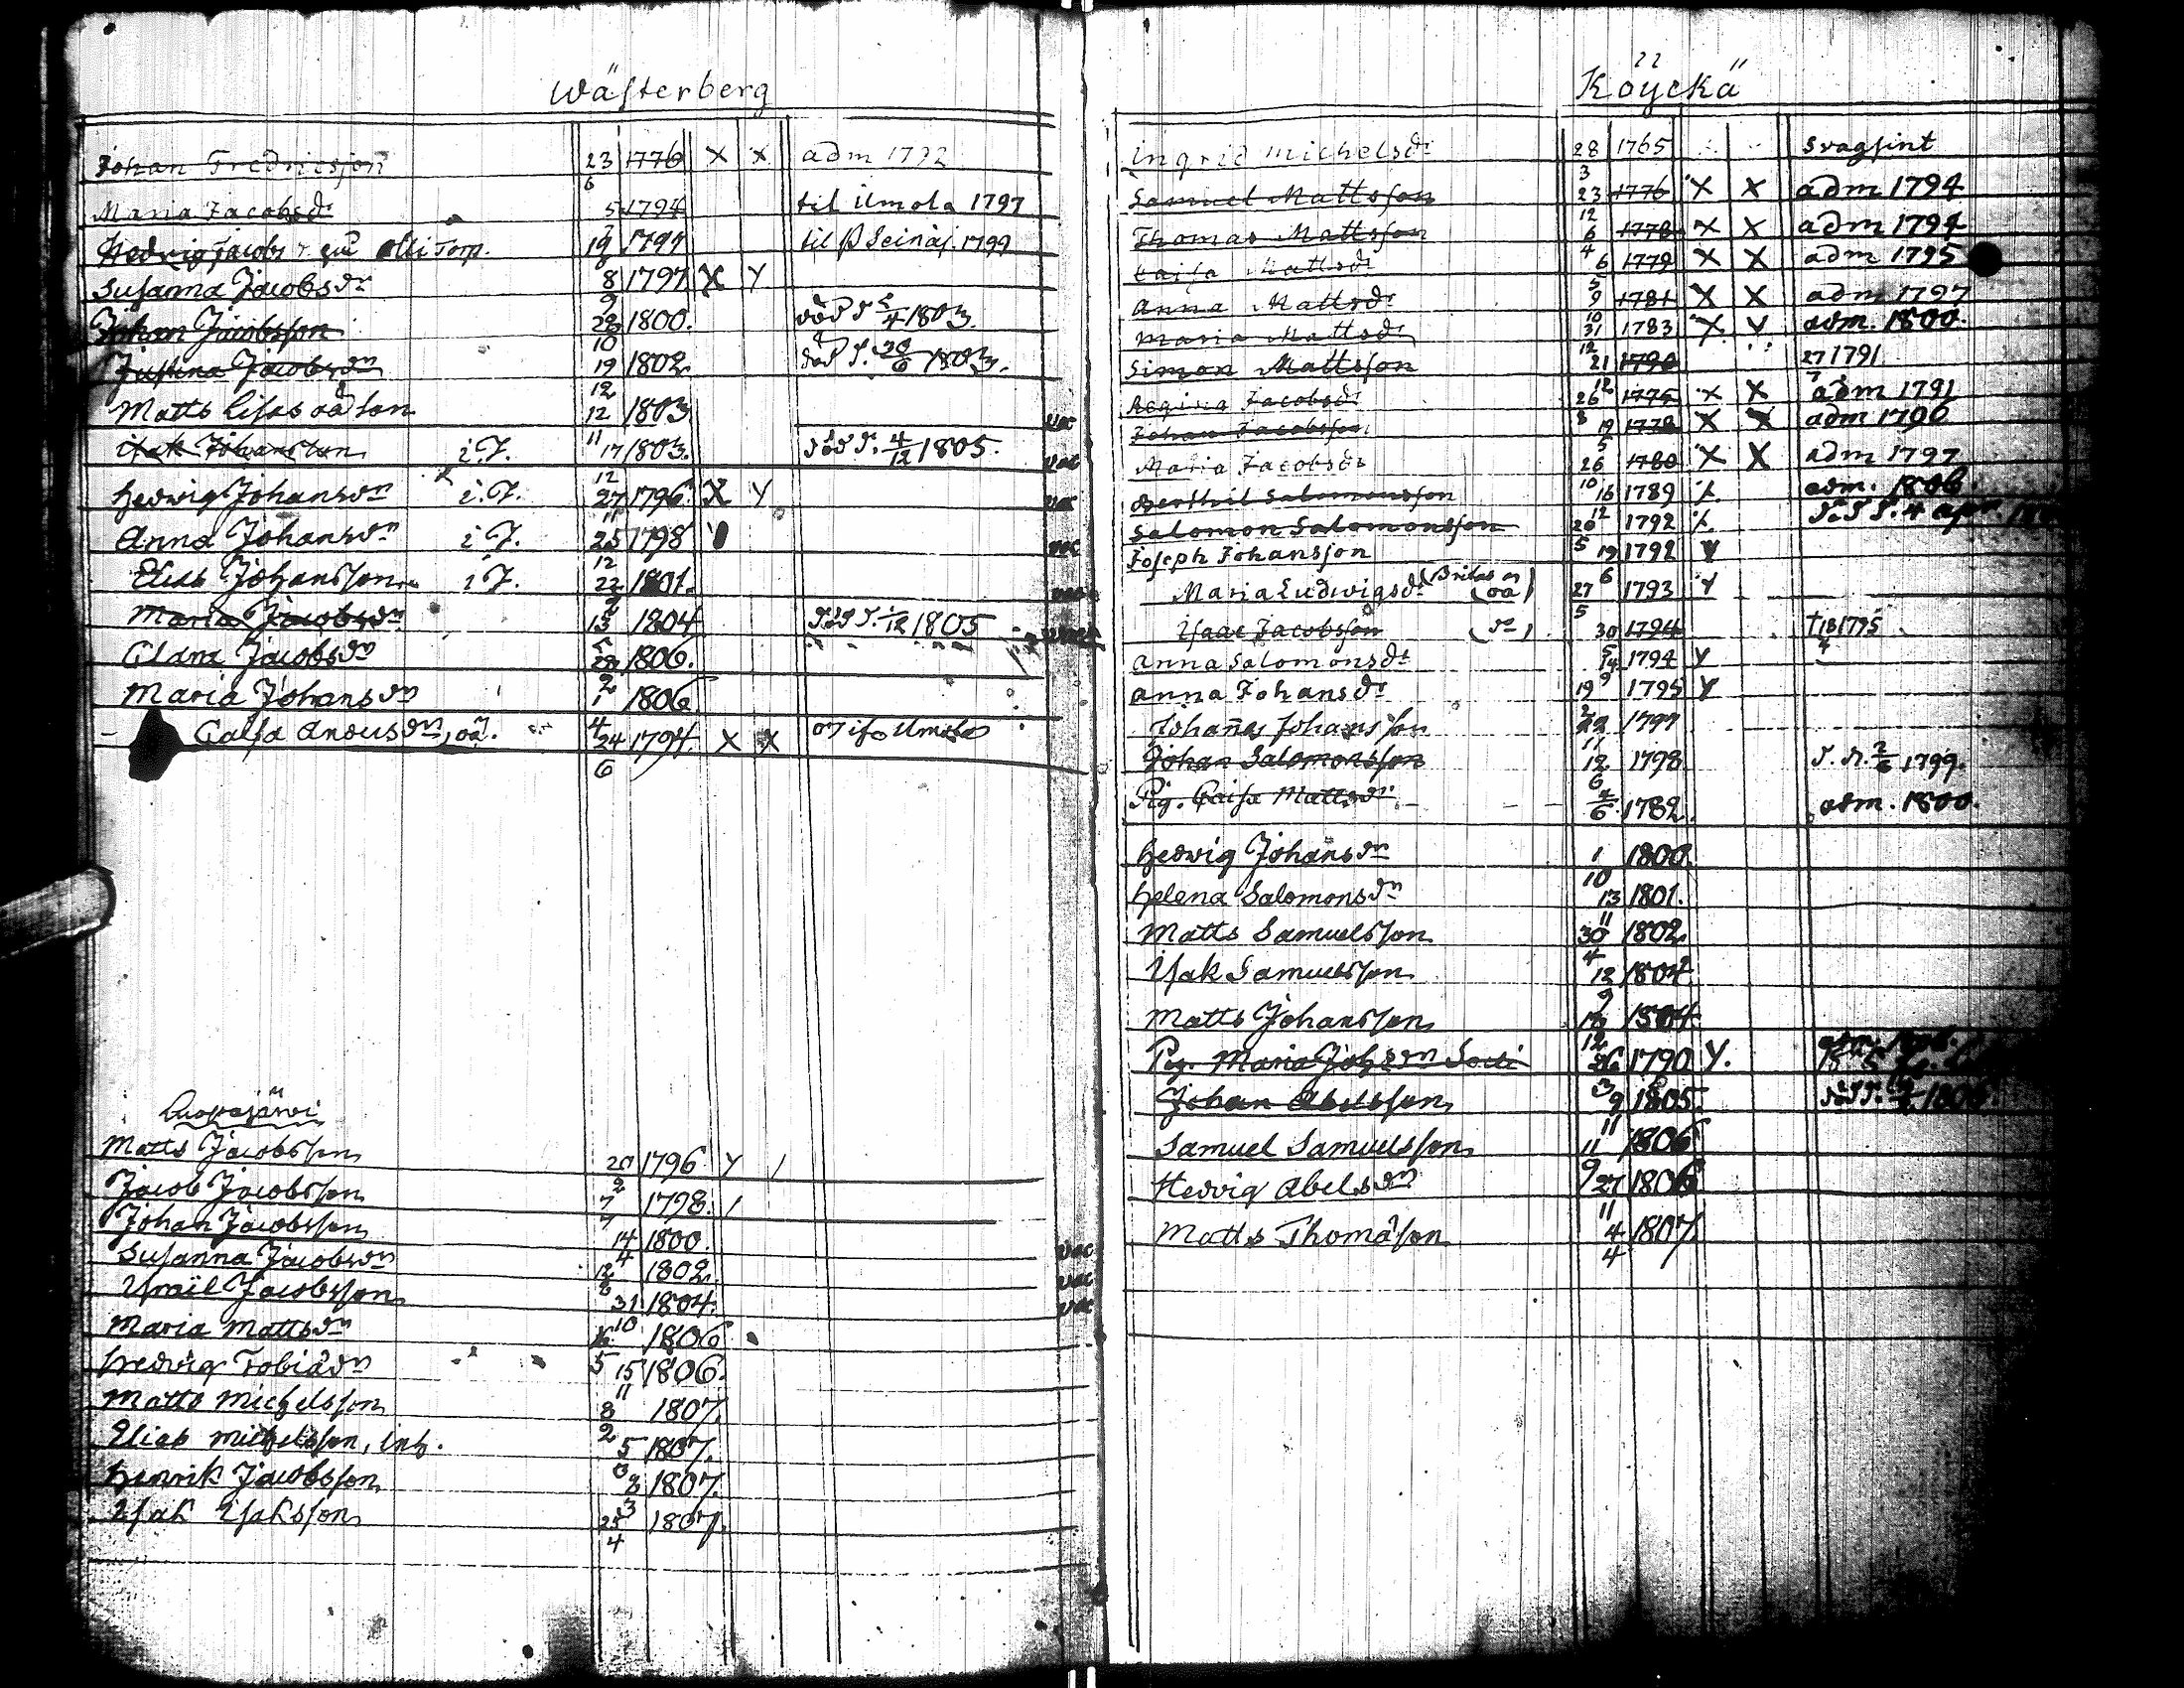 Wästerberg
Johan Fredricsson 23/6 1776 X X adm 1792
Maria Jacobsdr 5/7 1794 til ilmola 1797
Hedvig Jacobs 19/8 1797 til Seinäj. 1799
Susanna Jacobsdr 8/9 1797 X Y
Johan Jacobsson 28/10 1800. död d. 2/4 1803.
Justina Jacobsdr 19/12 1802. död d. 20/6 1803.
Matts Lisas oä son 12/11 1803
Isak Johansson i.J. 17/12 1803. död d. 4/12 1805.
Hedvig Johansdr i.J. 27/11 1796. X Y
Anna Johansdr i J. 25/12 1798
Elias Johansson i J. 22/2 1801.
Maria Jacobsdr 13/5 1804 död d. 1/12 1805
Clara Jacobsdr 28/2 1806.
Maria Johansdr 1/4 1806
Caisa Andersdr, oä. 24/6 1794. X X
Matts Jacobsson 20/2 1796 Y /
Jacob Jacobsson 7/7 1798. /
Johan Jacobsson 14/4 1800.
Susanna Jacobsdr 12/8 1802.
Ismäil Jacobsson 31/10 1804.
Maria Mattsdr 1806
Hedvig Tobiädr 15/11 1806.
Matts Michelsson 8/2 1807.
Elias Michelsson, inh. 5 1807.
Henrik Jacobsson 2/3 1807.
Isak Isaksson 25/4 1807.
vac
vac
vac
vac
vac
vac
vac
Köyckä
Ingrid Michelsdr 28/3 1765 svagsint
Samuel Mattsson 23/12 1776 X X adm 1794
Thomas Mattsson 6/4 1778 X X adm 1794
Caisa Mattsdr 6/5 1779 X X adm 1795
Anna Mattsdr 9/10 1781 X X adm 1797
Maria Mattsdr 31/12 1783 X Y adm. 1800.
Simon Mattsson 21/12 1790 27/7 1791
Regina Jacobsdr 26/8 1775 X X adm 1791
Johan Jacobsson 19/5 1778 X X adm 1796
Maria Jacobsdr 26/10 1780 X X adm 1797
Berthil Salomonsson 16/12 1789 adm. 1806.
Salomon Salomonsson 20/5 1792 död d. 4 apr.
Joseph Johansson 19/6 1792 Y
Maria Ludwigsdr (Britas oä) 27/5 1793 Y
Isaac Jacobsson (do) 30/5 1794 † 18/4 1795
Anna Salomonsdr 14/9 1794 Y
Anna Johansdr 19/2 1795 Y
Johannes Johansson 22/11 1797
Johan Salomonsson 12/6 1798. d. d. 2/6 1799.
Pig. Caisa Mattsdr 4/6 1782. adm. 1800.
Hedvig Johansdr 1/10 1800.
Helena Salomonsdr 13/11 1801.
Matts Samuelsson 30/4 1802.
Isak Samuelsson 12/9 1804.
Matts Johansson 18/12 1804.
Pig. Maria Johsdr 26/3 1790 Y.
Johan Abelsson 9/11 1805.
Samuel Samuelsson 11/9 1806
Hedvig Abelsdr 27/11 1806
Matts Thomäson 4/4 1807.